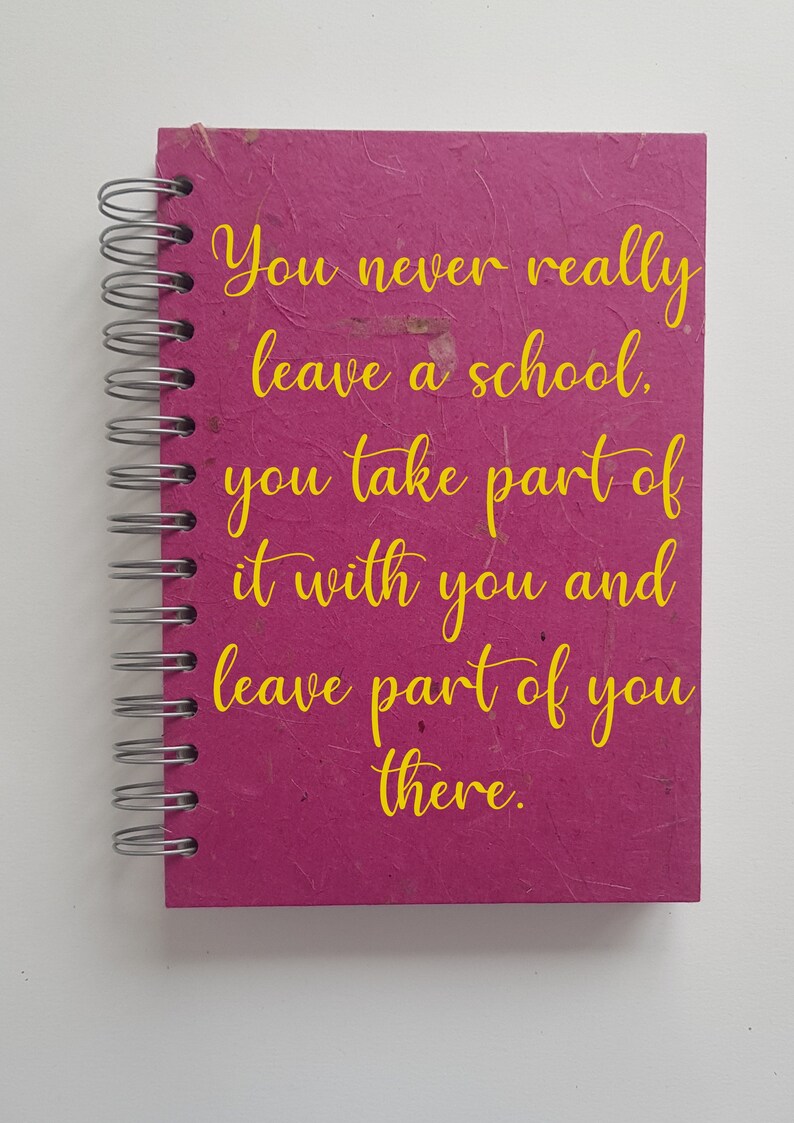 You never really
leave a school,
you take part of
it with you and
leave part of you
there.